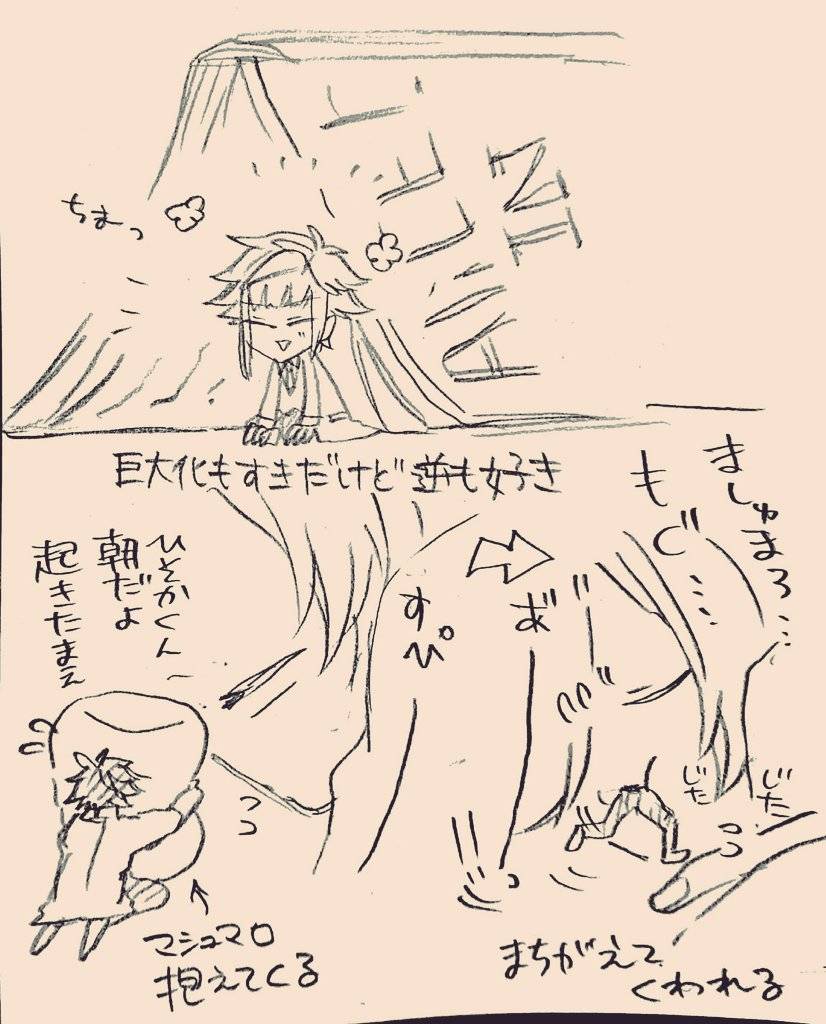 ちまっ
巨大化もすきだけど逆も好き
ひそかくん〜
朝だよ
起きたまえ
すぴ
マシュマロ
抱えてくる
ましゅまろ……
もぐ……
じた
じた
まちがえて
くわれる